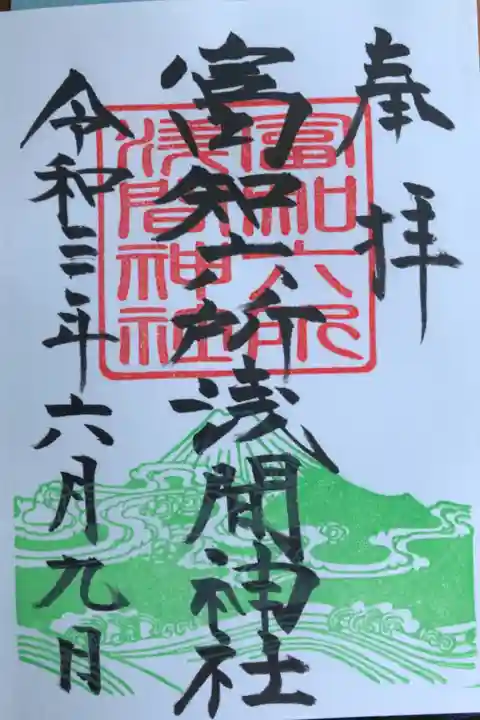 奉拝
富知六所浅間神社
富知六所
浅間神社
令和三年六月九日